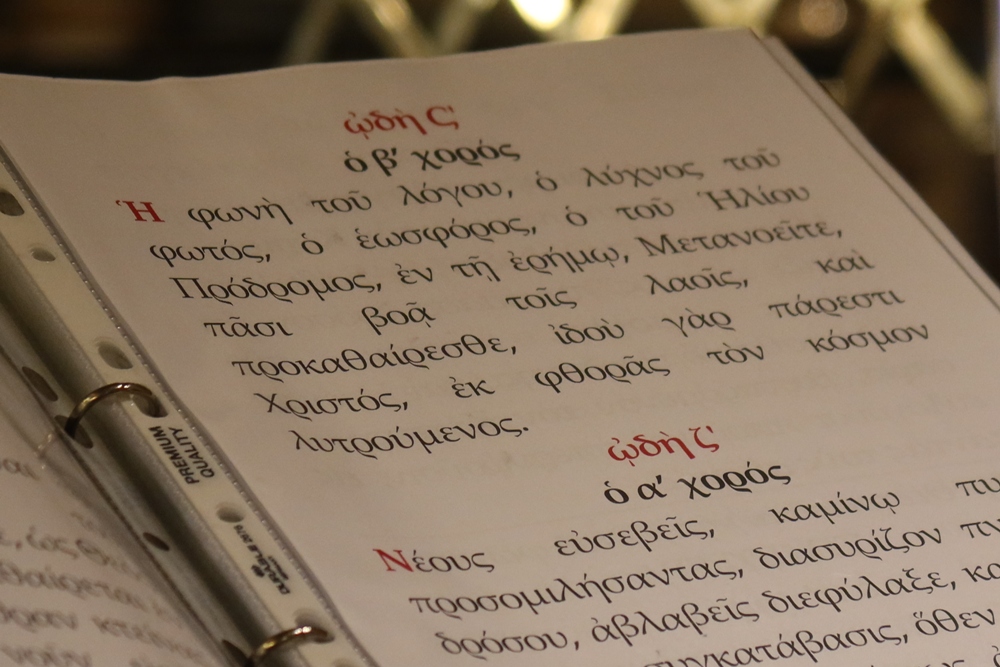 ᾠδὴ Ϛ'
ὁ β' χορός
Ἡ φωνὴ τοῦ λόγου, ὁ λύχνος τοῦ
φωτός, ὁ ἑωσφόρος, ὁ τοῦ Ἡλίου
Πρόδρομος, ἐν τῇ ἐρήμῳ, Μετανοεῖτε,
πᾶσι βοᾷ τοῖς λαοῖς, καὶ
προκαθαίρεσθε, ἰδοὺ γὰρ πάρεστι
Χριστός, ἐκ φθορᾶς τὸν κόσμον
λυτρούμενος.
ᾠδὴ ζ'
ὁ α' χορός
Νέους εὐσεβεῖς, καμίνῳ πυ
προσομιλήσαντας, διασυρίζον πν
δρόσου, ἀβλαβεῖς διεφύλαξε, κα
συγκατάβασις, ὅθεν
PREMIUM
QUALITY